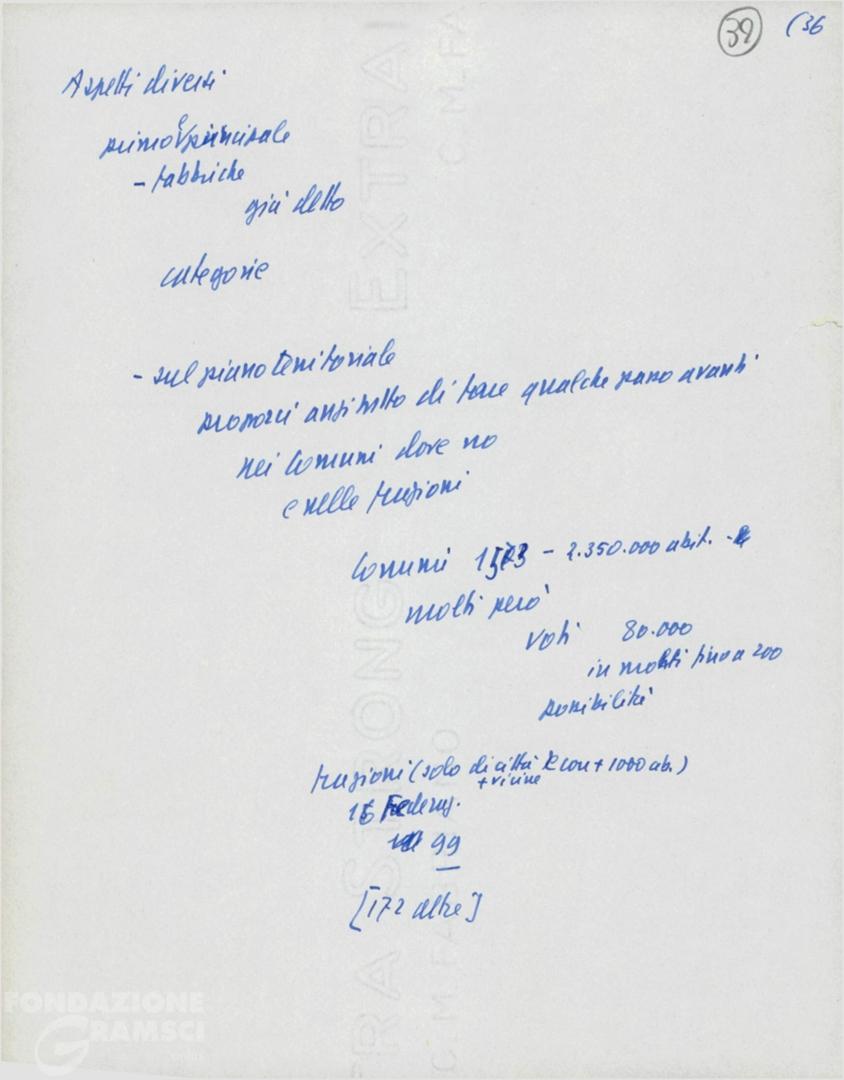 39 (36
Aspetti diversi
primo e principale
- fabbriche
già detto
categorie
- sul piano territoriale
proporci anzitutto di fare qualche passo avanti
nei Comuni dove no
e nelle frazioni
Comuni - 2.350.000 abit.
molti però
voti 80.000
in molti fino a 200
possibilità
frazioni (solo di città con + 1000 ab.)
+ vicine
15 Federaz.
99
[172 altre]
EXTRA STRONG EXTRA
C. M. FABRIANO C. M. FA
FONDAZIONE
GRAMSCI